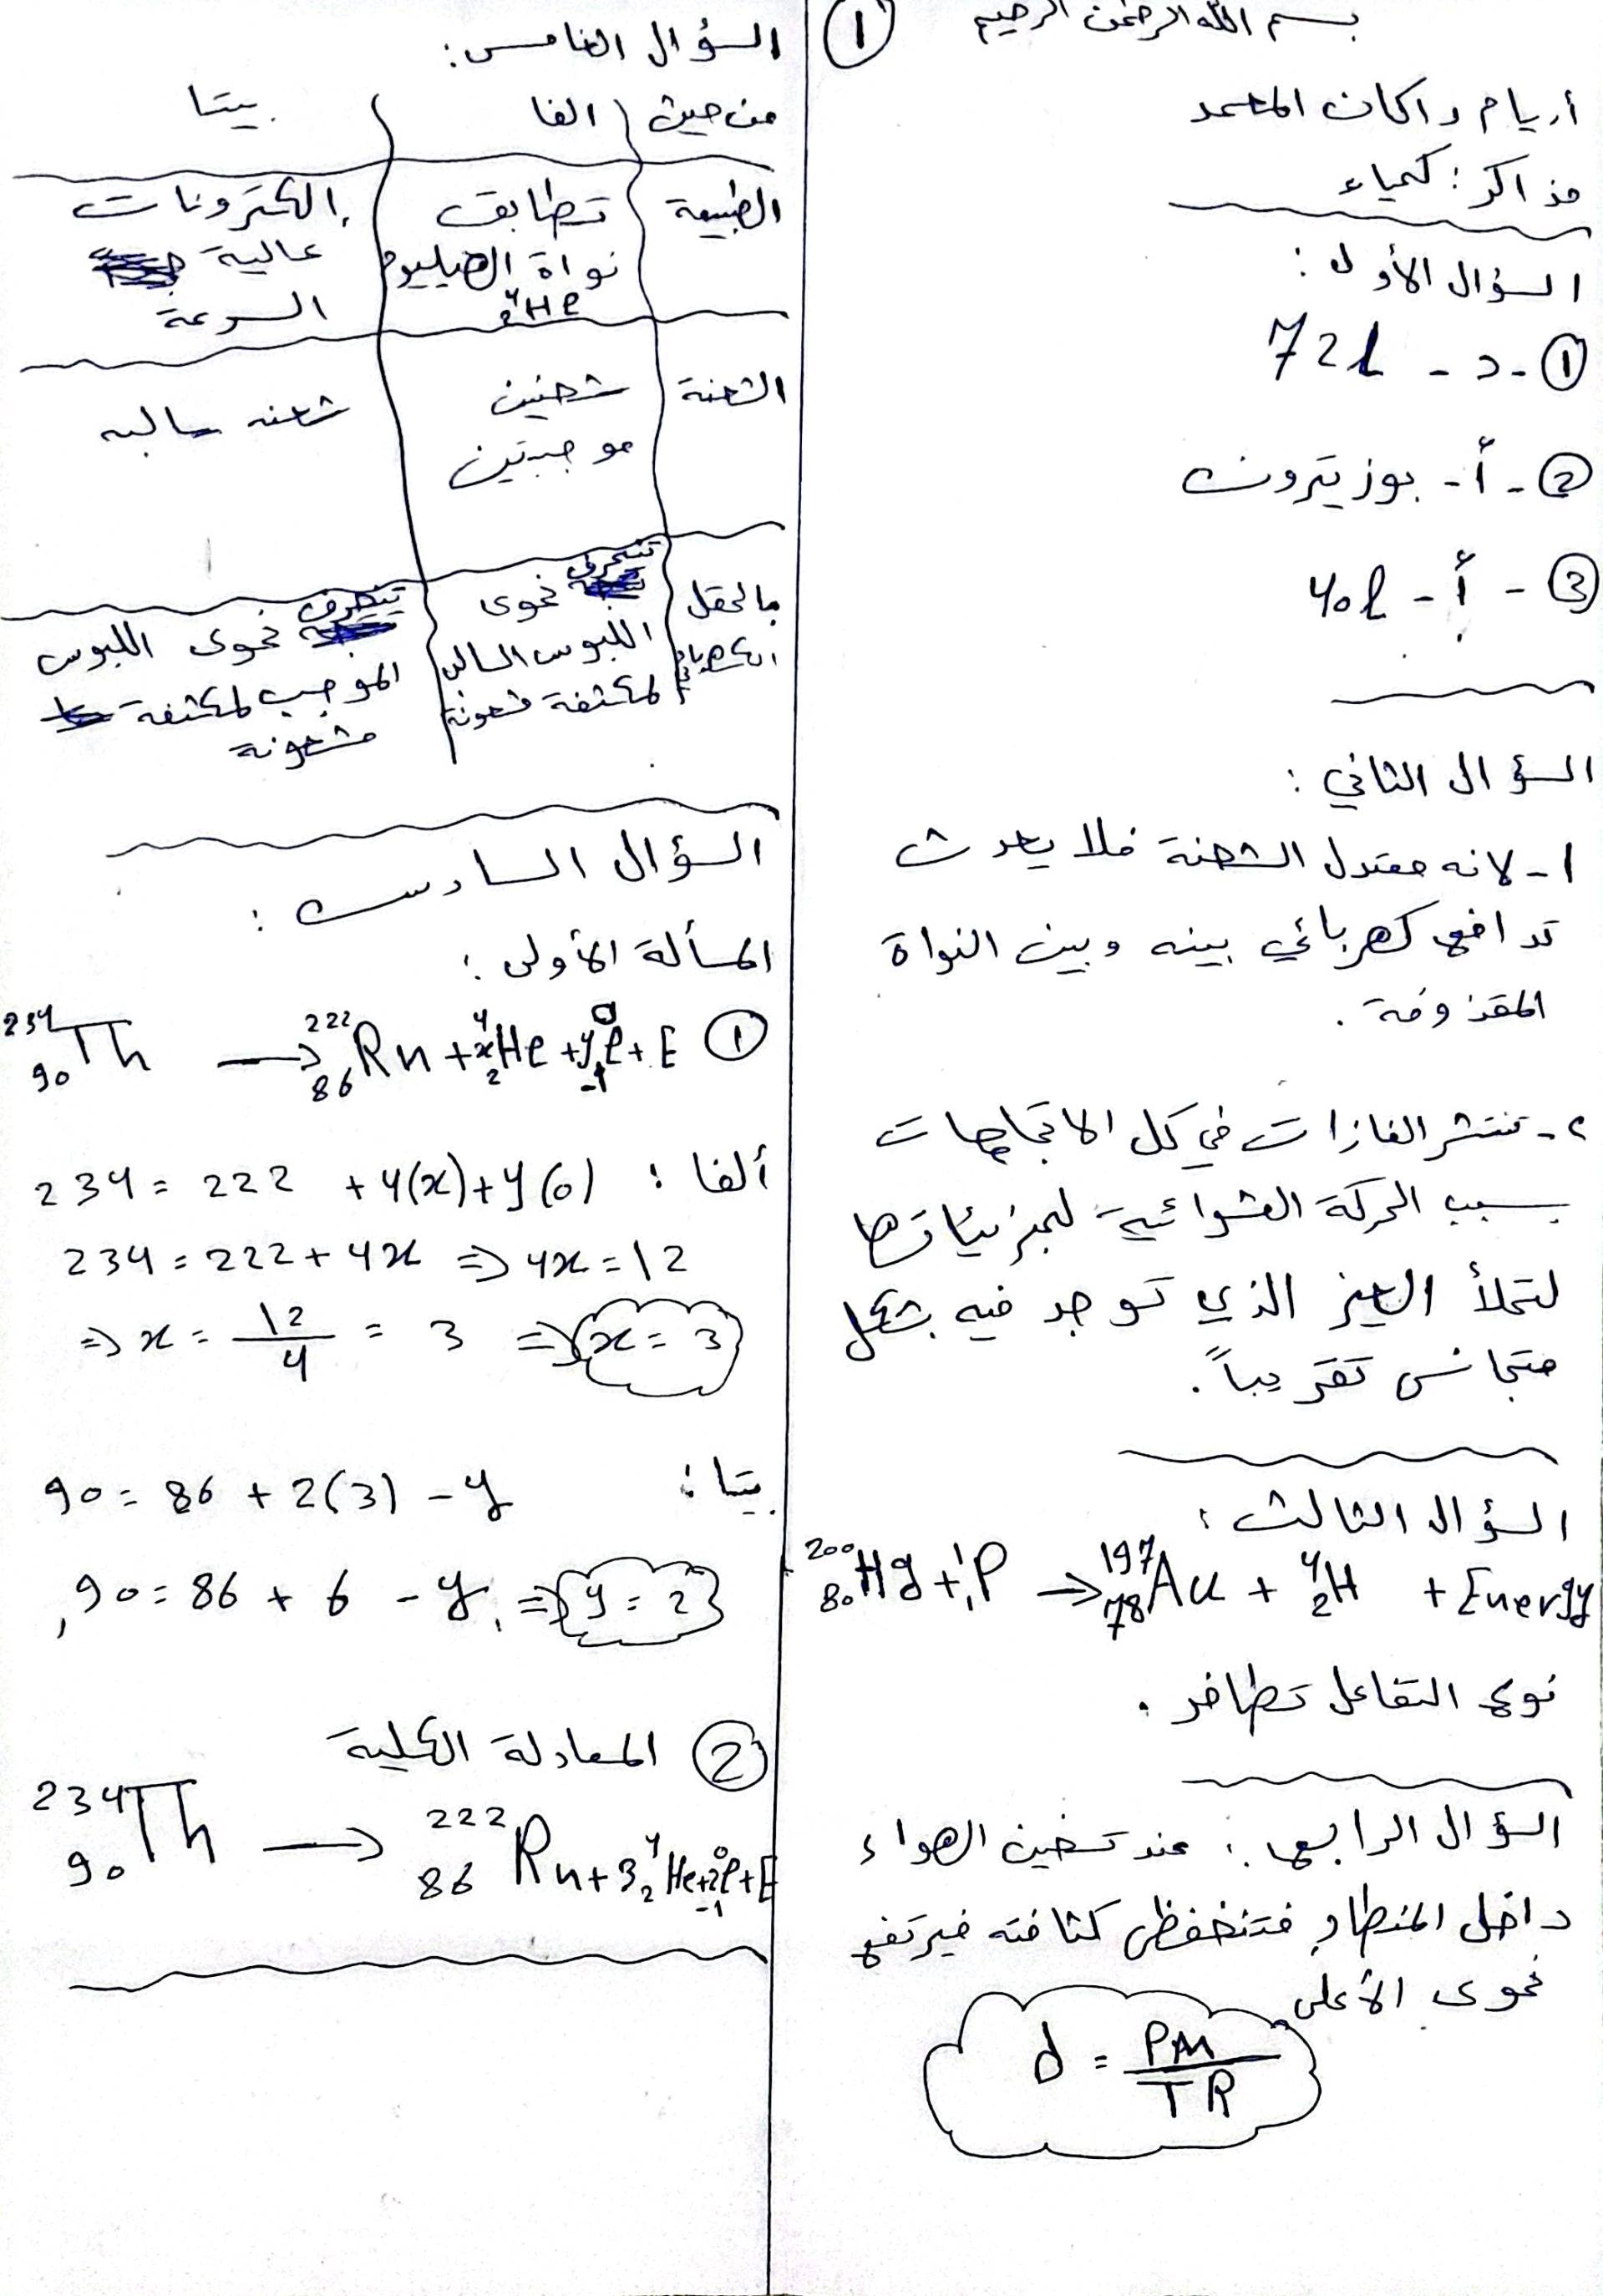 بسم الله الرحمن الرحيم
①
أريام راكان المعمد
مذاكر: كمياء
السؤال الأول:
① - د - 72L
② - أ - بوزيترون
③ - أ - 40l
السؤال الثاني:
1 - لانه معتدل الشحنة فلا يحدث
تدافع كهربائي بينه وبين النواة
المقذوفة.
2 - تنتشر الغازات في كل الاتجاهات
بسبب الحركة العشوائية لجزيئاتها
لتملأ الحيز الذي توجد فيه بشكل
متجانس تقريباً.
السؤال الثالث:
²⁰⁰₈₀Hg + ¹₁P → ¹⁹⁷₇₈Au + ⁴₂H + Energy
نوع التفاعل تطافر.
السؤال الرابع: عند تسخين الهواء
داخل المنطاد فتنخفظ كثافته فيرتفع
نحوى الأعلى
d = PM / TR
السؤال الخامس:
من حيث | الفا | بيتا
الطبيعة | تطابق نواة الهيليوم ⁴₂He | إلكترونات عالية السرعة
الشحنة | شحنين موجبتين | شحنه سالبه
بالحقل الكهربائي | تنحرف نحوى اللبوس السالب لمكثفة مشحونة | تنحرف نحوى اللبوس الموجب لمكثفة مشحونة
السؤال السادس:
المسألة الأولى:
① ²³⁴₉₀Th → ²²²₈₆Rn + x⁴₂He + y⁰₋₁e + E
ألفا: 234 = 222 + 4(x) + y(0)
234 = 222 + 4x ⇒ 4x = 12
⇒ x = 12/4 = 3 ⇒ x = 3
بيتا: 90 = 86 + 2(3) - y
90 = 86 + 6 - y, ⇒ y = 2
② المعادلة الكلية
²³⁴₉₀Th → ²²²₈₆Rn + 3⁴₂He + 2⁰₋₁e + E